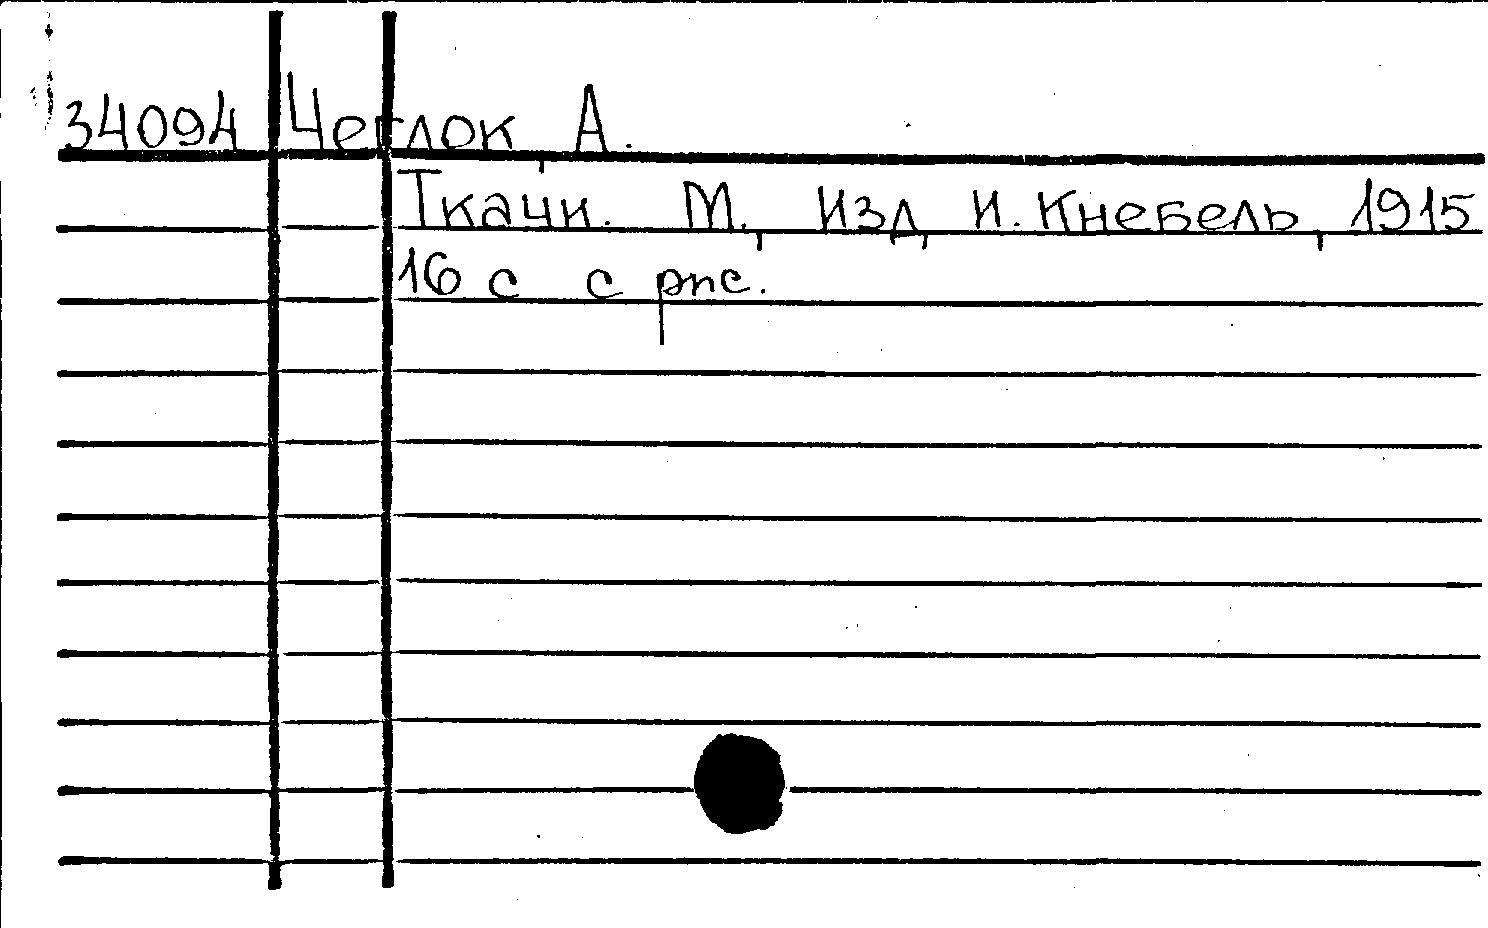 34094 Чеглок, А.
Ткачи. М., Изд, И. Кнебель, 1915
16 с с рис.